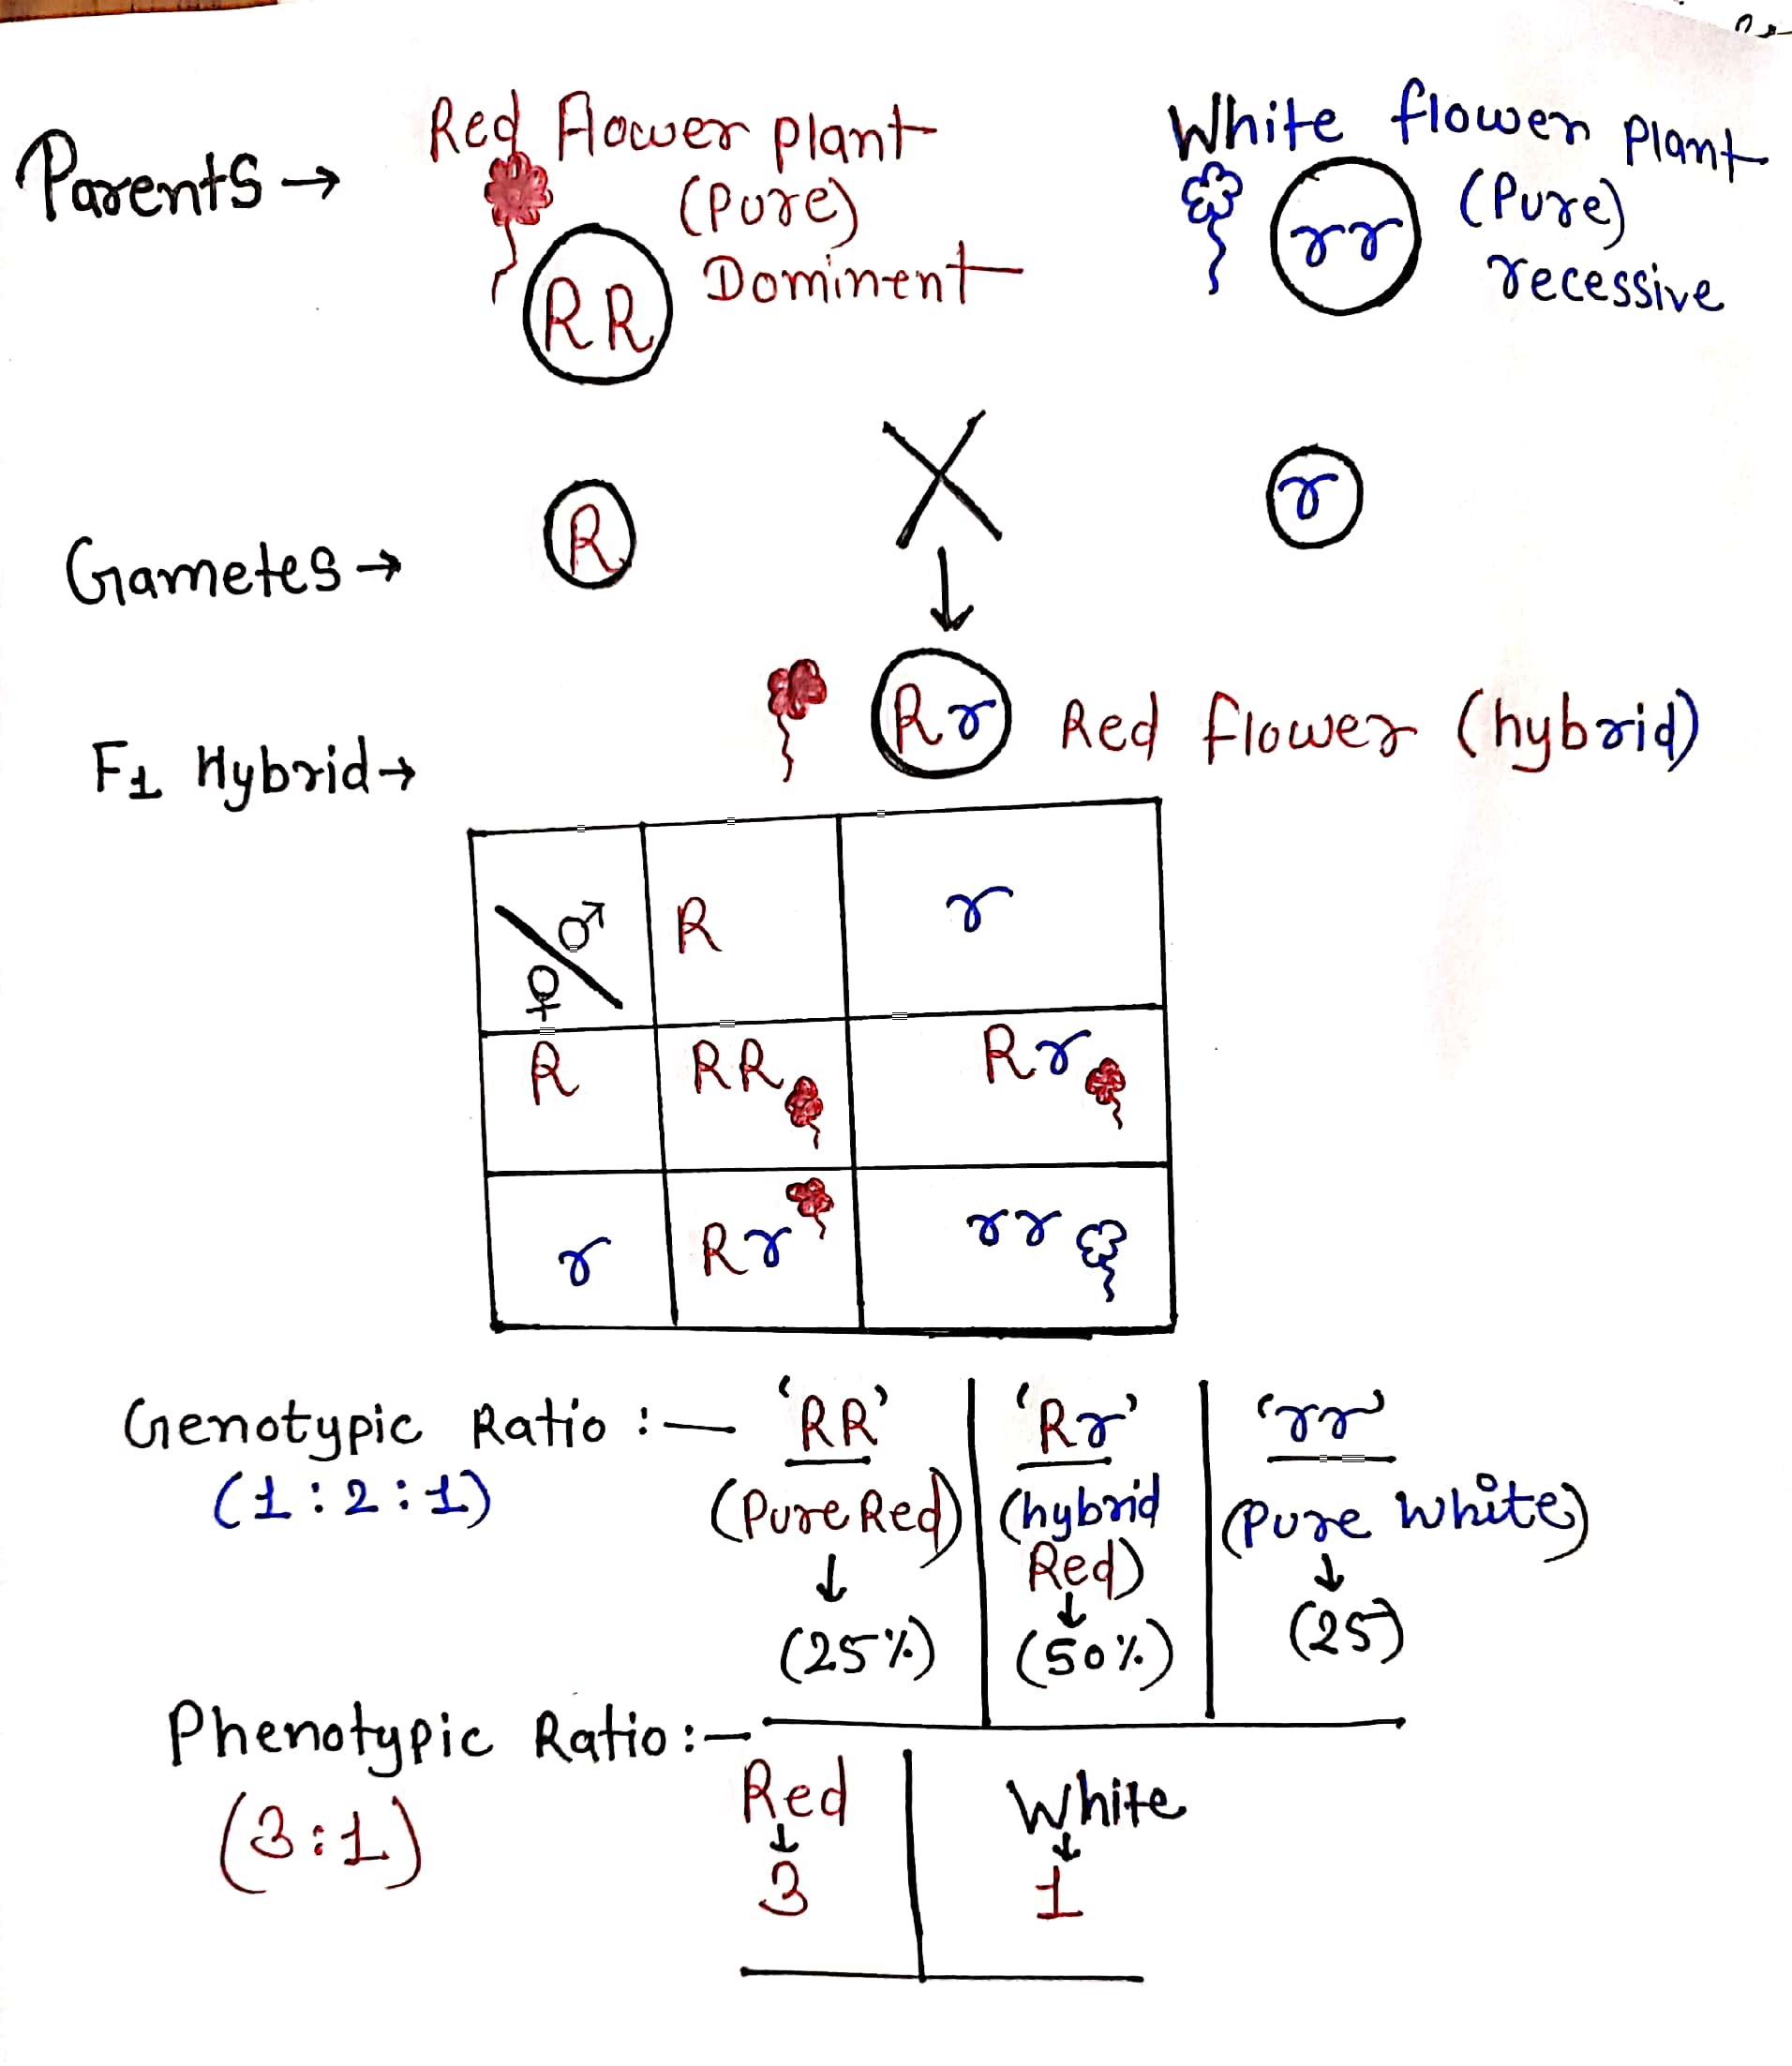 Parents → Red Flower plant White flower plant
(Pure) (Pure)
RR Dominent rr recessive
X
Gametes → R r
↓
F1 Hybrid → Rr Red flower (hybrid)
♂ R r
♀
R RR Rr
r Rr rr
Genotypic Ratio :— 'RR' 'Rr' 'rr'
(1:2:1) (Pure Red) (hybrid Red) (Pure White)
↓ ↓ ↓
(25%) (50%) (25)
Phenotypic Ratio :—
(3:1) Red White
↓ ↓
3 1